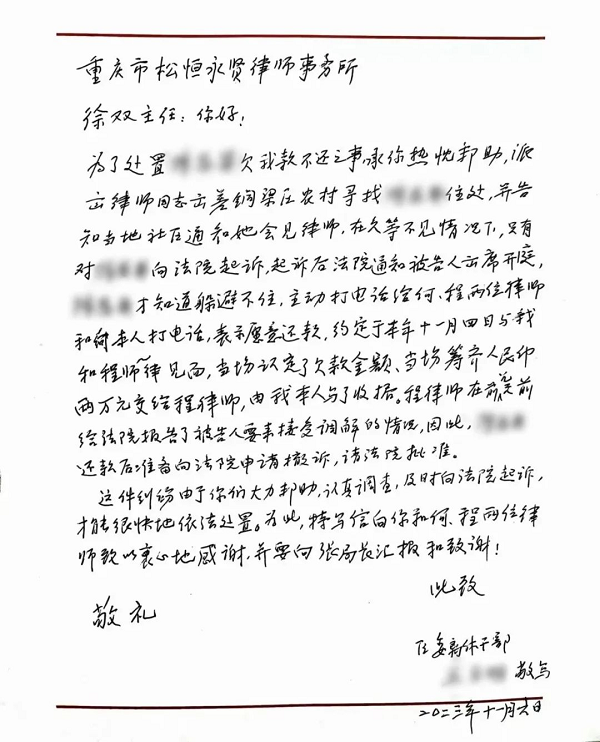 重庆市松恒永贤律师事务所
徐双主任：你好！
为了处置 欠我款不还之事承你热忱邦助，派
云律师同志去养铜梁区农村寻找 住处，并告
知当地社区通知她会见律师，在久等不见情况下，只有
对 向法院起诉，起诉后法院通知被告人出席开庭，
才知道躲避不住，主动打电话给何、程两位律师
和向本人打电话，表示愿意还款，约定于本年十一月四日与我
和程师律见面，当场认定了欠款金额、当场筹齐人民币
两万元交给程律师，由我本人写了收据。程律师在前
给法院报告了被告人要来接受调解的情况，因此，
还款后准备向法院申请撤诉，请法院批准。
这件纠纷由于你们大力邦助，认真调查，及时向法院起诉，
才能很快地依法处置。为此，特写信向你和何、程两位律
师致以衷心地感谢，并要向张局长汇报和致谢！
此致
敬礼
区委离休干部
敬写
二〇二三年十一月六日